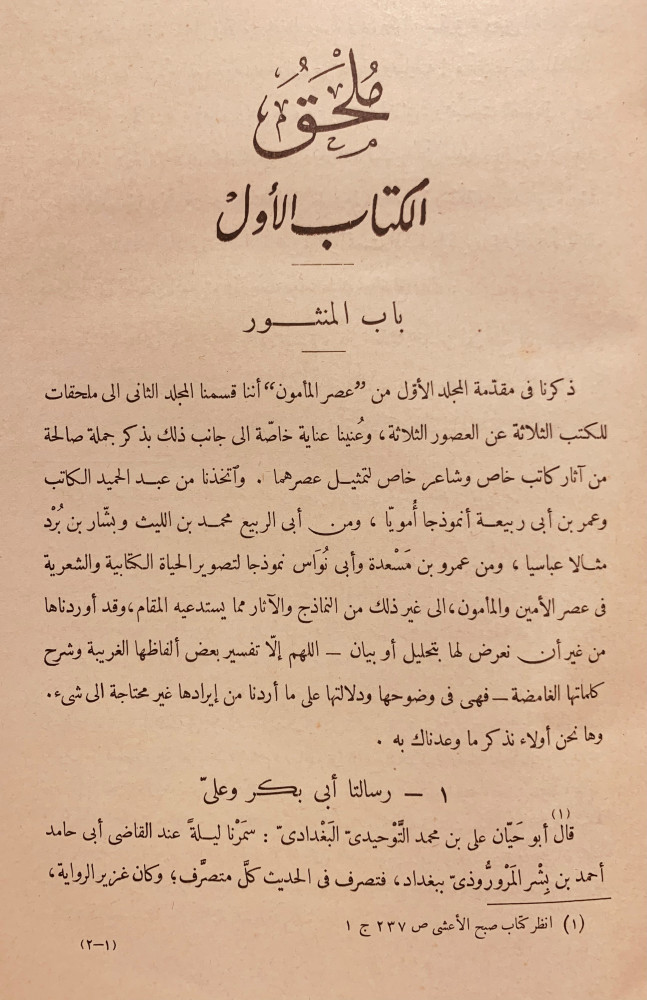 مُلْحَقُ
الكتاب الأول
باب المنثـــور
ذكرنا فى مقدّمة المجلد الأوّل من ”عصر المأمون“ أننا قسمنا المجلد الثانى الى ملحقات
للكتب الثلاثة عن العصور الثلاثة، وعُنينا عناية خاصّة الى جانب ذلك بذكر جملة صالحة
من آثار كاتب خاص وشاعر خاص لتمثيـل عصرهما . وٱتخذنا من عبـد الحميد الكاتب
وعمر بن أبى ربيعـة أنموذجا أُمويّا ، ومن أبى الربيع محمـد بن الليث وبشّار بن بُرْد
مثـالا عباسيا ، ومن عمرو بن مَسْعدة وأبى نُوَاس نموذجا لتصوير الحياة الكتابية والشعرية
فى عصر الأمين والمأمون،الى غير ذلك من النماذج والآثار مما يستدعيه المقام،وقد أوردناها
من غير أن نعرض لها بتحليل أو بيان – اللهم إلّا تفسير بعض ألفاظها الغريبة وشرح
كلماتها الغامضة – فهى فى وضوحها ودلالتها على ما أردنا من إيرادها غير محتاجة الى شىء.
وها نحن أولاء نذكر ما وعدناك به .
١ – رسالتا أبى بكر وعلىّ
قال (١) أبو حَيّان على بن محمد التَّوْحيدىّ البَغْدادىّ : سمَرْنا ليـلةً عند القاضى أبى حامد
أحمد بن بِشْر المَرْورُّوذىّ ببغداد، فتصرف فى الحديث كلَّ متصرَّف؛ وكان غزير الرواية،
(١) انظر كتاب صبح الأعشى ص ٢٣٧ ج ١
(٢–١)